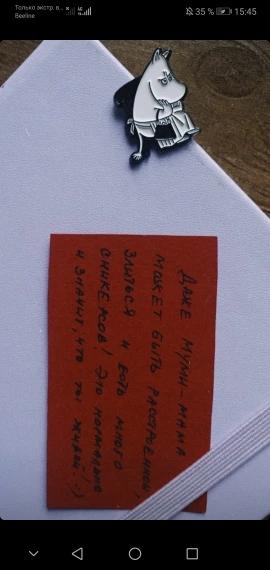 Только экстр. в...
Beeline
35 %
15:45
ДАЖЕ МУМИ-МАМА
МОЖЕТ БЫТЬ РАССТРОЕННОЙ,
ЗЛИТЬСЯ И ЕСТЬ МНОГО
СНИКЕРСОВ! ЭТО НОРМАЛЬНО
И ЗНАЧИТ, ЧТО ТЫ ЖИВОЙ! :)